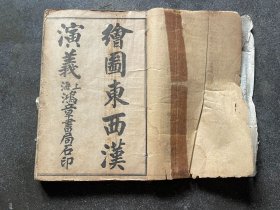 繪圖東西漢
演義
上海鴻章書局石印